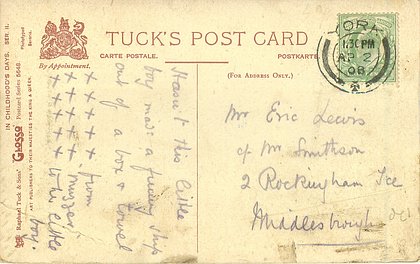 TUCK'S POST CARD
CARTE POSTALE.
POSTKARTE
By Appointment.
(FOR ADDRESS ONLY.)
IN CHILDHOOD'S DAYS. SER. II.
Phototyped
Berlin.
Raphael Tuck & Sons' "GLOSSO" Postcard Series 6648.
ART PUBLISHERS TO THEIR MAJESTIES THE KING & QUEEN.
YORK
1.30 PM
AP 2
06
Hasn't this little
boy made a funny ship
out of a box & towel
x x x x x x from
x x x x x
to the little
boy.
Mr Eric Lewis
c/o Mr Smithson
2 Rockingham Tce
Middlesborough